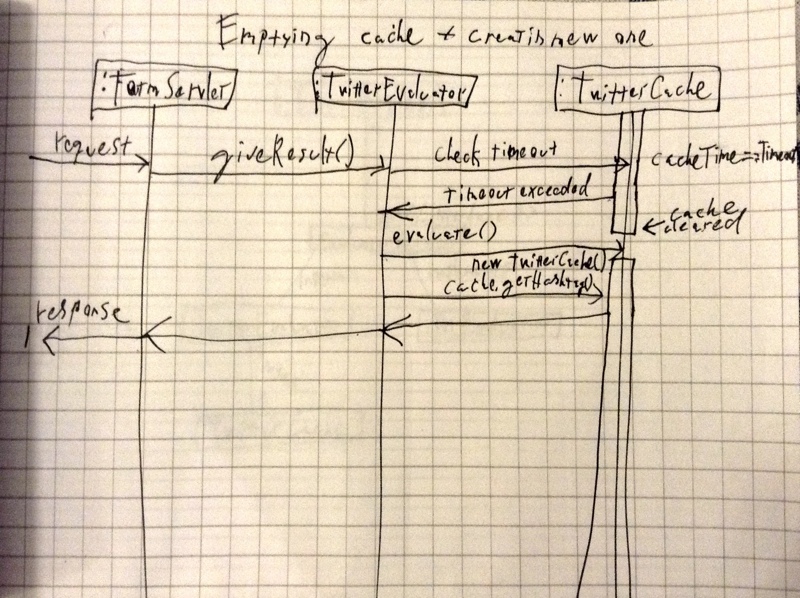 Emptying cache + creatin new one
:FormServlet
:TwitterEvaluator
:TwitterCache
request
giveResult()
check timeout
cacheTime==Timeout
timeout exceeded
cache
cleared
evaluate()
new TwitterCache()
cache.getHashtag()
response